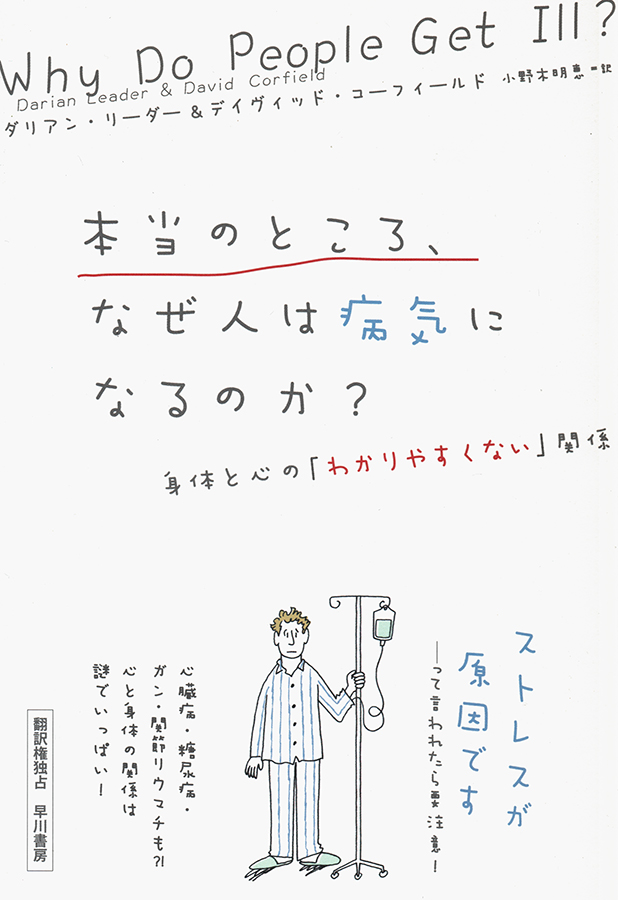 Why Do People Get Ill?
Darian Leader & David Corfield
ダリアン・リーダー&デイヴィッド・コーフィールド 小野木明恵=訳
本当のところ、
なぜ人は病気に
なるのか?
身体と心の「わかりやすくない」関係
ストレスが
原因です
──って言われたら要注意!
心臓病・糖尿病・
ガン・関節リウマチも?!
心と身体の関係は
謎でいっぱい!
翻訳権独占 早川書房